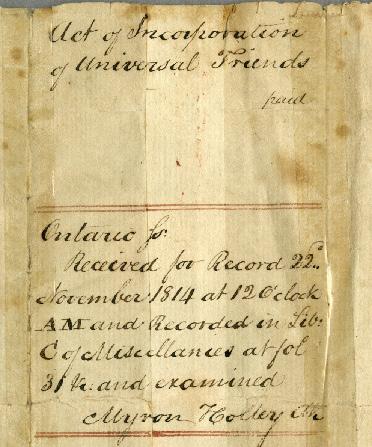 Act of Incorporation
of Universal Friends
paid
Ontario Ss.
Received for Record 22d..
November 1814 at 12 Oclock
AM and Recorded in Lib:
C of Miscellances at fol
31 &c. and examined
Myron Holley Clk